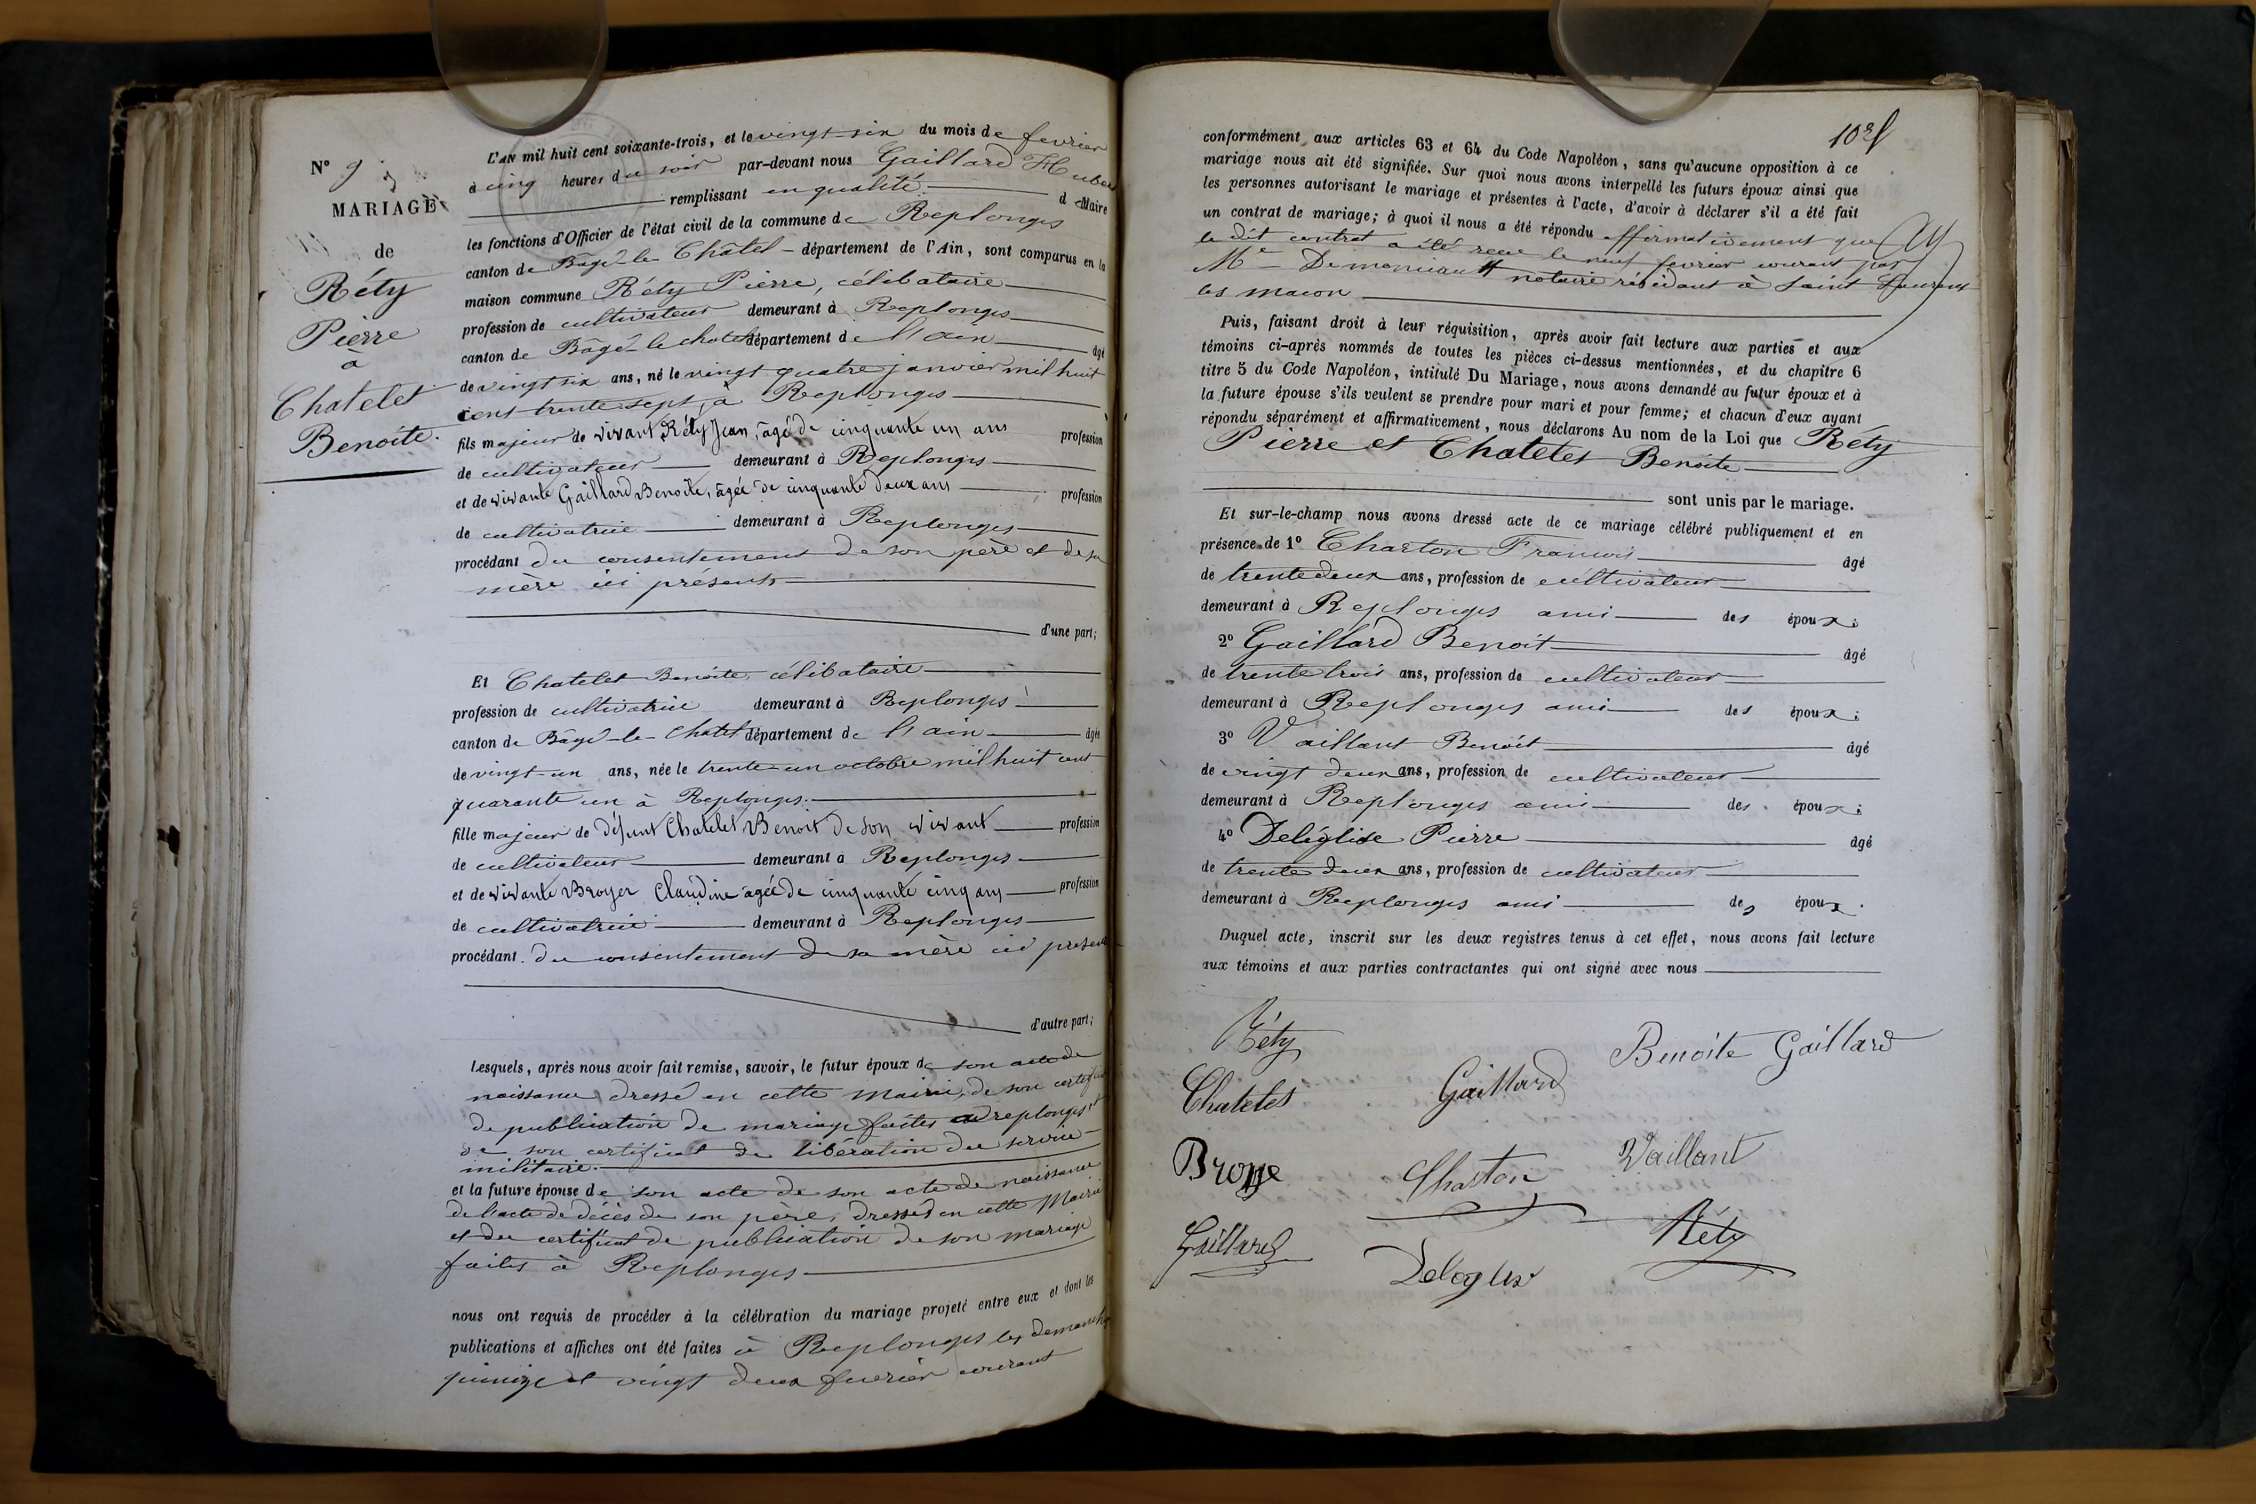 N° 9
MARIAGE
de
Réty
Pierre
à
Chatelet
Benoite.
L'AN mil huit cent soixante-trois, et le vingt-six du mois de fevrier
à cinq heures du soir par-devant nous Gaillard Huber
remplissant en qualité de Maire
les fonctions d'Officier de l'état civil de la commune de Replonges
canton de Bâgé-le-Châtel département de l'Ain, sont comparus en la
maison commune Réty Pierre, célibataire
profession de cultivateur demeurant à Replonges
canton de Bâgé-le chatel département de l'ain âgé
de vingt six ans, né le vingt quatre janvier mil huit
cent trente sept, à Replonges
fils majeur de vivant Réty Jean, âgé de cinquante un ans profession
de cultivateur demeurant à Replonges
et de vivante Gaillard Benoîte, âgée de cinquante deux ans profession
de cultivatrice demeurant à Replonges
procédant du consentement de son père et de sa
mère ici présents
d'une part;
Et Chatelet Benoite célibataire
profession de cultivatrice demeurant à Replonges
canton de Bâgé-le-chatel département de l'ain âgée
de vingt-un ans, née le trente-un octobre mil huit cent
quarante un à Replonges.
fille majeur de défunt Chatelet Benoit de son vivant profession
de cultivateur demeurant à Replonges
et de vivante Broyer Claudine agée de cinquante cinq ans profession
de cultivatrice demeurant à Replonges
procédant du consentement de sa mère ici présente
d'autre part;
Lesquels, après nous avoir fait remise, savoir, le futur époux de son acte de
naissance dressé en cette Mairie, de son certificat
de publication de mariage faites à replonges et
de son certificat de libération du service
militaire.
et la future épouse de son acte de son acte de naissance
de l'acte de décès de son père, dressés en cette Mairie
et du certificat de publication de son mariage
faites à Replonges
nous ont requis de procéder à la célébration du mariage projeté entre eux et dont les
publications et affiches ont été faites à Replonges les demanches
quinze et vingt deux fevrier courant
conformément aux articles 63 et 64 du Code Napoléon, sans qu'aucune opposition à ce
mariage nous ait été signifiée. Sur quoi nous avons interpellé les futurs époux ainsi que
les personnes autorisant le mariage et présentes à l'acte, d'avoir à déclarer s'il a été fait
un contrat de mariage; à quoi il nous a été répondu affirmativement que
le dit contrat a été reçu le neuf fevrier courant par
Me notaire résidant à Saint Laurent
les macon
Puis, faisant droit à leur réquisition, après avoir fait lecture aux parties et aux
témoins ci-après nommés de toutes les pièces ci-dessus mentionnées, et du chapitre 6
titre 5 du Code Napoléon, intitulé Du Mariage, nous avons demandé au futur époux et à
la future épouse s'ils veulent se prendre pour mari et pour femme; et chacun d'eux ayant
répondu séparément et affirmativement, nous déclarons Au nom de la Loi que Réty
Pierre et Chatelet Benoite
sont unis par le mariage.
Et sur-le-champ nous avons dressé acte de ce mariage célébré publiquement et en
présence de 1° Charton Francois âgé
de trente deux ans, profession de cultivateur
demeurant à Replonges ami des époux;
2° Gaillard Benoit âgé
de trente trois ans, profession de cultivateur
demeurant à Replonges ami des époux;
3° Vaillant Benoit âgé
de vingt deux ans, profession de cultivateur
demeurant à Replonges ami des époux;
4° Deléglise Pierre âgé
de trente deux ans, profession de cultivateur
demeurant à Replonges ami des époux.
Duquel acte, inscrit sur les deux registres tenus à cet effet, nous avons fait lecture
aux témoins et aux parties contractantes qui ont signé avec nous
Réty
Benoite Gaillard
Chatelet
Gaillard
Vaillant
Charton
Réty
Gaillard